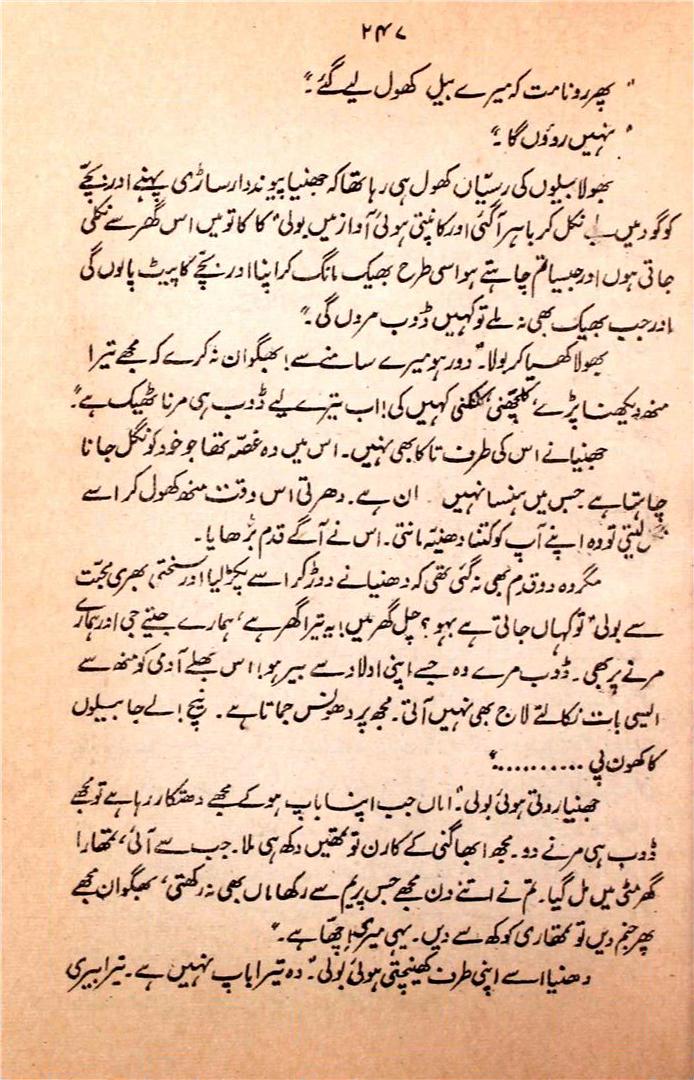 ۲۴۷
"پھر رونا مت کہ میرے بیل کھول لیے گئے۔"
"نہیں روؤں گا۔"
بھولا بیلوں کی رسیّاں کھول ہی رہا تھا کہ جھنیا پیوند دار ساڑی پہنے اور بچّے
کو گود میں لیے نکل کر باہر آگئی اور کانپتی ہوئی آواز میں بولی "کاکا تو میں اس گھر سے نکلی
جاتی ہوں اور جیسا تم چاہتے ہو اسی طرح بھیک مانگ کر اپنا اور بچّے کا پیٹ پالوں گی
اور جب بھیک بھی نہ ملے تو کہیں ڈوب مروں گی۔"
بھولا کھسیا کر بولا۔ "دور ہو میرے سامنے سے! بھگوان نہ کرے کہ مجھے تیرا
منھ دیکھنا پڑے، کلچھنی کلنکنی کہیں کی! اب تیرے لیے ڈوب ہی مرنا ٹھیک ہے۔"
جھنیا نے اس کی طرف تاکا بھی نہیں۔ اس میں وہ غصّہ تھا جو خود کو نگل جانا
چاہتا ہے۔ جس میں ہنسا نہیں ان ہے۔ دھرتی اس وقت منھ کھول کر اسے
لیتی تو وہ اپنے آپ کو کتنا دھنیہ مانتی۔ اس نے آگے قدم بڑھایا۔
مگر وہ دو قدم بھی نہ گئی تھی کہ دھنیا نے دوڑ کر اسے پکڑ لیا اور سختی بھری محبّت
سے بولی "تو کہاں جاتی ہے بہو؟ چل گھر میں! یہ تیرا گھر ہے، ہمارے جیتے جی اور ہمارے
مرنے پر بھی۔ ڈوب مرے وہ جسے اپنی اولاد سے بیر ہو! اس بھلے آدمی کو منھ سے
ایسی بات نکالتے لاج بھی نہیں آتی۔ مجھ پر دھونس جماتا ہے۔ نیچ! لے جا بیلوں
کا کھون پی ..........."
جھنیا روتی ہوئی بولی۔ "اماں جب اپنا باپ ہو کے مجھے دھتکار رہا ہے تو مجھے
ڈوب ہی مرنے دو۔ مجھ ابھاگنی کے کارن تو تمھیں دکھ ہی ملا۔ جب سے آئی، تمھارا
گھر مٹی میں مل گیا۔ تم نے اتنے دن مجھے جس پریم سے رکھا ماں بھی نہ رکھتی، بھگوان مجھے
پھر جنم دیں تو تمھاری کوکھ سے دیں۔ یہی میری اِچھا ہے۔"
دھنیا اسے اپنی طرف کھینچتی ہوئی بولی۔ "وہ تیرا باپ نہیں ہے۔ تیرا بیری